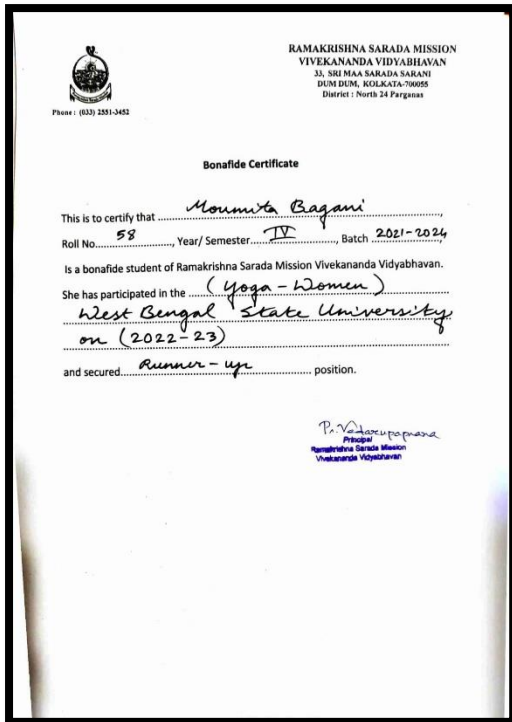 RAMAKRISHNA SARADA MISSION
VIVEKANANDA VIDYABHAVAN
33, SRI MAA SARADA SARANI
DUM DUM, KOLKATA-700055
District : North 24 Parganas
Phone : (033) 2551-3452
Bonafide Certificate
This is to certify that Moumita Bagani,
Roll No. 58, Year/ Semester IV, Batch 2021-2024,
Is a bonafide student of Ramakrishna Sarada Mission Vivekananda Vidyabhavan.
She has participated in the (Yoga - Women)
West Bengal State University
on (2022-23)
and secured Runner - up position.
Principal
Ramakrishna Sarada Mission
Vivekananda Vidyabhavan